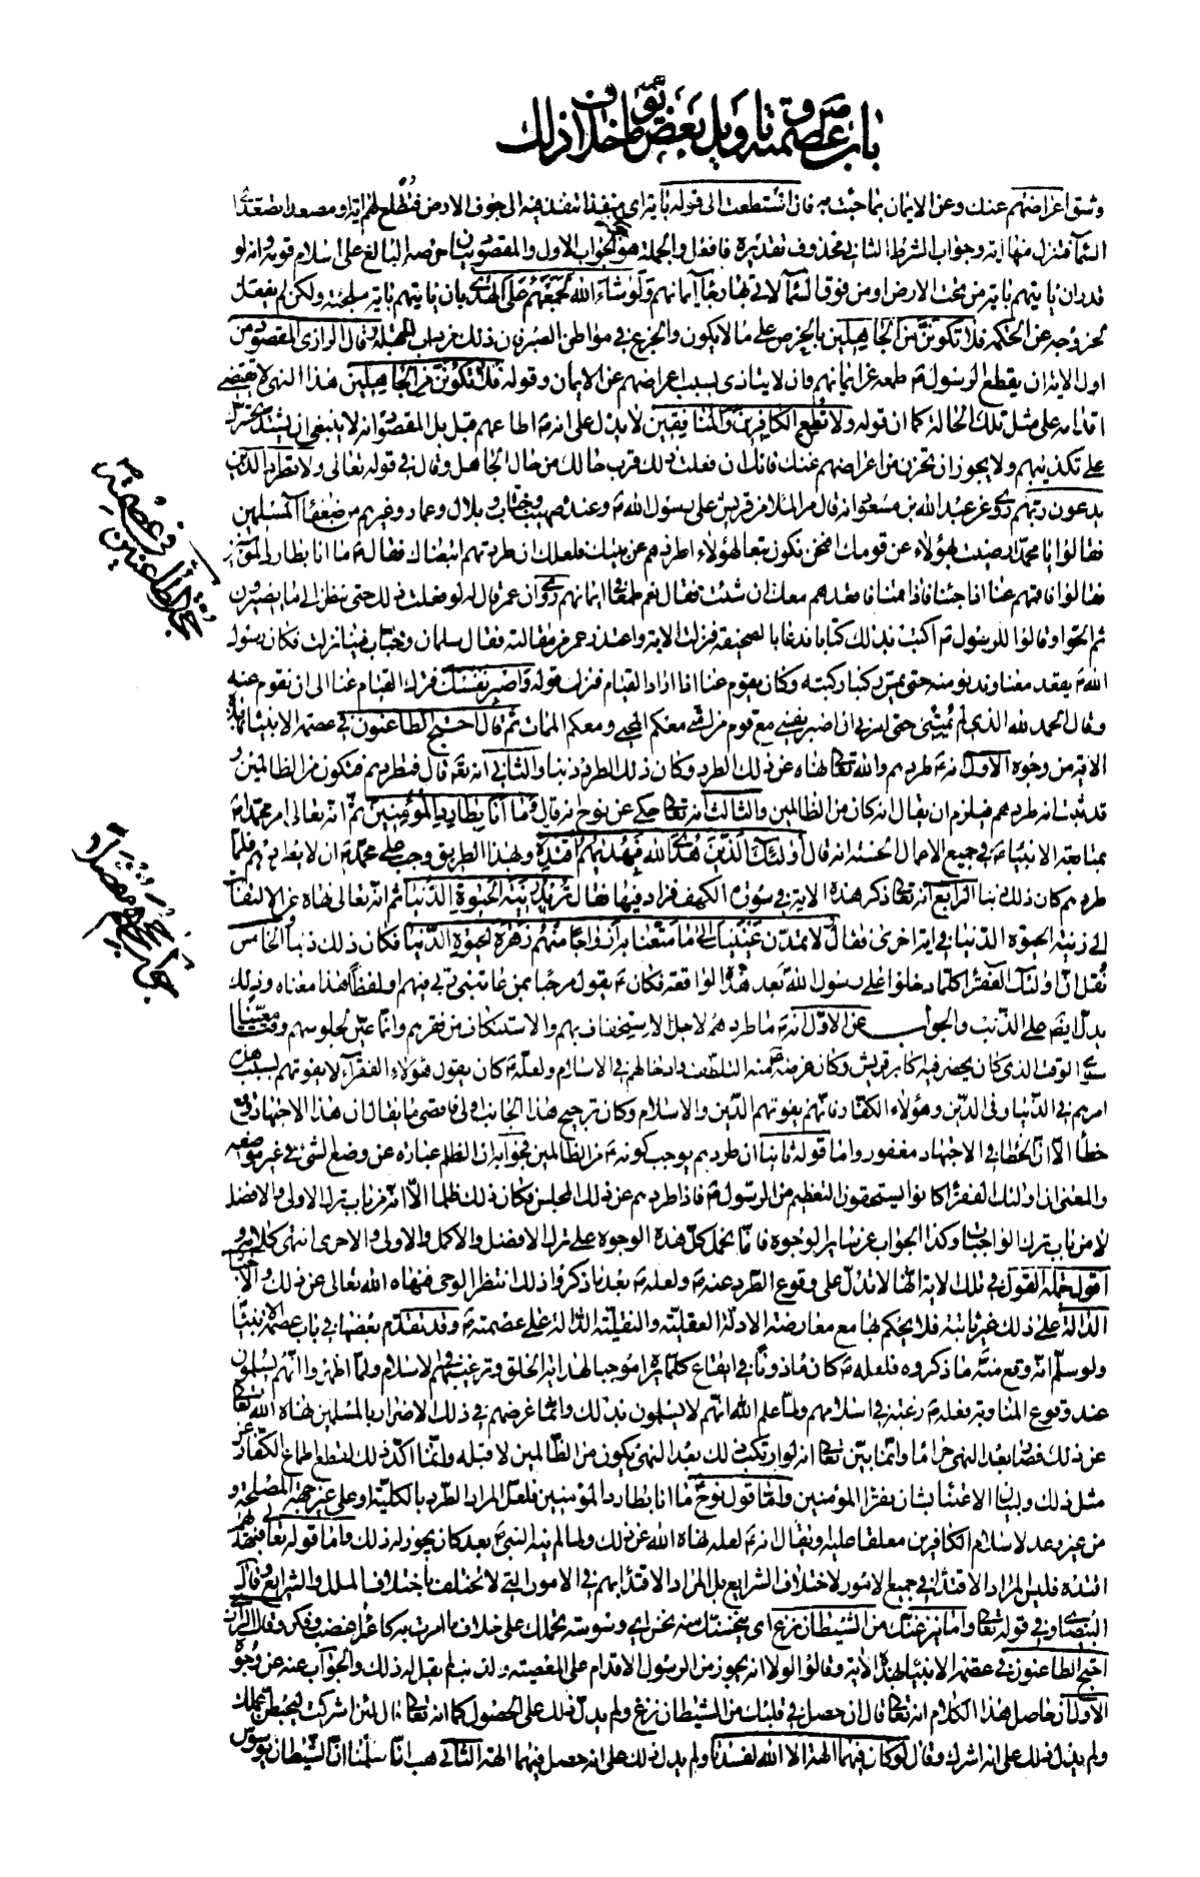 باب عصمته ص وتأويل بعض ما يوهم خلاف ذلك
وشق اعراضهم عنك وعن الايمان بما جئت به فان استطعت الى قوله بآية اى منفذا تنفذ فيه الى جوف الارض فتطلع لهم آية او مصعدا تصعد الى
السماء فتنزل منها آية وجواب الشرط الثاني محذوف تقديره فافعل والجملة هو الجواب الاول والمقصود بيان حرصه البالغ على اسلام قومه وانه لو
قدر ان يأتيهم بآية من تحت الارض او من فوق السماء لاتى بها رجاء ايمانهم ولو شاء الله لجمعهم على الهدى بان يأتيهم بآية ملجئة ولكن لم يفعل
لخروجه عن الحكمة فلا تكونن من الجاهلين بالحرص على ما لا يكون والجزع في مواطن الصبر فان ذلك من دأب الجهلة وقال الرازي المقصود من
اول الآية ان يقطع الرسول ص طمعه عن ايمانهم وان لا يتأذى بسبب اعراضهم عن الايمان وقوله فلا تكونن من الجاهلين هذا النهى لا يقتضى
اقدامه على مثل تلك الحالة كما ان قوله ولا تطع الكافرين والمنافقين لا يدل على انه ص اطاعهم وقبل بل المقصود انه لا ينبغي ان يشتد تحسرك
على تكذيبهم ولا يجوز ان تحزن من اعراضهم عنك فانك ان فعلت ذلك قرب حالك من حال الجاهل وقال في قوله تعالى ولا تطرد الذين
يدعون ربهم روى عن عبد الله بن مسعود انه قال مر الملأ من قريش على رسول الله ص وعنده صهيب وخباب وبلال وعمار وغيرهم من ضعفاء المسلمين
فقالوا يا محمد ارضيت بهؤلاء عن قومك افنحن نكون تبعا لهؤلاء اطردهم عن نفسك فلعلك ان طردتهم اتبعناك فقال ص ما انا بطارد المؤمنين
فقالوا فاقمهم عنا اذا جئنا فاذا قمنا فاقعدهم معك ان شئت فقال نعم طمعا في ايمانهم روى ان عمر قال له لو فعلت ذلك حتى ننظر الى ما يصيرون
ثم الحوا وقالوا للرسول ص اكتب بذلك كتابا فدعا بالصحيفة فنزلت الآية واعتذر عمر من مقالته فقال سلمان وخباب فينا نزلت فكان رسول
الله ص يقعد معنا وندنو منه حتى تمس ركبنا ركبته وكان يقوم عنا اذا اراد القيام فنزل قوله واصبر نفسك فترك القيام عنا الى ان نقوم عنه
وقال الحمد لله الذي لم يمتني حتى امرني ان اصبر نفسي مع قوم من امتي معكم المحيى ومعكم الممات ثم قال احتج الطاعنون في عصمة الانبياء بهذه
الآية من وجوه الاول انه ص طردهم والله تعالى نهاه عن ذلك الطرد وكان ذلك الطرد ذنبا والثاني انه تعالى قال فتطردهم فتكون من الظالمين و
قد ثبت انه طردهم فيلزم ان يقال انه كان من الظالمين والثالث انه تعالى حكى عن نوح انه قال وما انا بطارد المؤمنين ثم انه تعالى امر محمدا ص
بمتابعة الانبياء ع في جميع الاعمال الحسنة انه قال اولئك الذين هدى الله فبهديهم اقتده وبهذا الطريق وجب على محمد ص ان لا يطردهم فلما
طردهم كان ذلك ذنبا الرابع انه تعالى ذكر هذه الآية في سورة الكهف فزاد فيها فقال تريد زينة الحيوة الدنيا ثم انه تعالى نهاه عن الالتفات
الى زينة الحيوة الدنيا في آية اخرى فقال لا تمدن عينيك الى ما متعنا به ازواجا منهم زهرة الحيوة الدنيا فكان ذلك ذنبا الخامس
نقل ان اولئك الفقراء كلما دخلوا على رسول الله بعد هذه الواقعة فكان ص يقول مرحبا بمن عاتبني ربي فيهم او لفظا هذا معناه وذلك
يدل ايضا على الذنب والجواب عن الاول انه ص ما طردهم لاجل الاستخفاف بهم والاستنكاف من فقرهم وانما عين لجلوسهم وقتا معينا
سوى الوقت الذى كان يحضر فيه اكابر قريش وكان غرضه منه التلطف في ادخالهم في الاسلام ولعله ص كان يقول هؤلاء الفقراء لا يفوتهم بسبب هذا
امر مهم في الدنيا وفى الدين وهؤلاء الكفار فانهم يفوتهم الدين والاسلام وكان ترجيح هذا الجانب اولى فاقصى ما يقال ان هذا الاجتهاد وقع
خطأ الا ان الخطأ في الاجتهاد مغفور واما قوله ثانيا ان طردهم يوجب كونه ص من الظالمين فجوابه ان الظلم عبارة عن وضع الشئ في غير موضعه
والمعنى ان اولئك الفقراء كانوا يستحقون التعظيم من الرسول ص فاذا طردهم عن ذلك المجلس فكان ذلك ظلما الا انه من باب ترك الاولى والافضل
لا من باب ترك الواجبات وكذا الجواب عن سائر الوجوه فانا نحمل كل هذه الوجوه على ترك الافضل والاكمل والاولى والاحرى انتهى كلامه و
اقول جملة القول في تلك الآية انها لا تدل على وقوع الطرد عنه ص ولعله ص بعد ما ذكروا ذلك انتظر الوحى فنهاه الله تعالى عن ذلك والاخبار
الدالة على ذلك غير ثابتة فلا يحكم بها مع معارضة الادلة العقلية والنقلية الدالة على عصمته ص وقد تقدم بعضها في باب عصمة الانبياء
ولو سلم انه وقع منه ما ذكروه فلعله ص كان مأذونا في ايقاع كل ما يراه موجبا لهداية الخلق وترغيبهم في الاسلام ولما اظهروا انهم يسلمون
عند وقوع المناوبة فعله ص رغبة في اسلامهم ولما علم الله انهم لا يسلمون بذلك وانما غرضهم في ذلك الاضرار بالمسلمين نهاه الله تعالى
عن ذلك فصار بعد النهى حراما وانما بين تعالى انه لو ارتكب ذلك بعد النهى يكون من الظالمين لا قبله وانما اكد ذلك لقطع اطماع الكفار عن
مثل ذلك ولبيان الاعتناء بشأن فقراء المؤمنين واما قول نوح ما انا بطارد المؤمنين فلعل المراد الطرد بالكلية او على غير جهة المصلحة و
من غير وعد لاسلام الكافرين معلقا عليه ويقال انه ع لعله نهاه الله عن ذلك ولما لم ينه النبي ص بعد كان يجوز له ذلك واما قوله تعالى فبهديهم
اقتده فليس المراد الاقتداء في جميع الامور لاختلاف الشرايع بل المراد الاقتداء بهم في الامور التي لا تختلف باختلاف الملل والشرايع وقال
البيضاوي في قوله تعالى واما ينزغنك من الشيطان نزغ اى ينخسنك منه نخس اى وسوسة تحملك على خلاف ما امرت به كاعتراء غضب وفكر وقال الرازي
احتج الطاعنون في عصمة الانبياء بهذه الآية وقالوا لولا انه يجوز من الرسول الاقدام على المعصية والذنب لم يقل له ذلك والجواب عنه عن وجوه
الاول ان حاصل هذا الكلام انه تعالى قال ان حصل في قلبك من الشيطان نزغ ولم يدل ذلك على الحصول كما انه تعالى قال لئن اشركت ليحبطن عملك
ولم يدل ذلك على انه اشرك وقال لو كان فيهما الهة الا الله لفسدتا ولم يدل ذلك على انه حصل فيهما الهة الثاني هب انا سلمنا ان الشيطان يوسوس